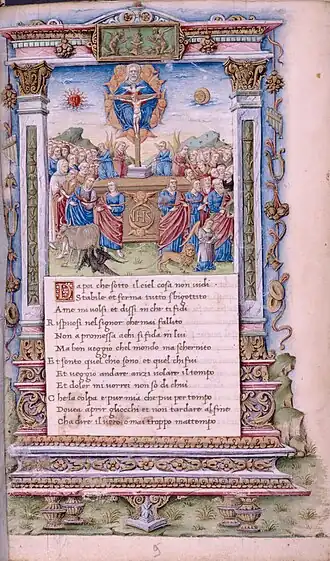 IHS
Da poi che sotto il ciel cosa non uidi
Stabile et ferma tutto sbigotito
A me mi uolsi et dissi in che ti fidi
Rispuosi nel signor che mai fallito
Non a promessa achi si fida in lui
Ma ben ueggio chel mondo ma schernito
Et sento quel chio sono et quel chi fui
Et ueggio andare anzi uolare il tempo
Et doler mi uorrei non so di chui
Che la colpa e pur mia che piu per tempo
Douea aprir gliocchi et non tardare alfine
Cha dire il uero omai troppo mattempo